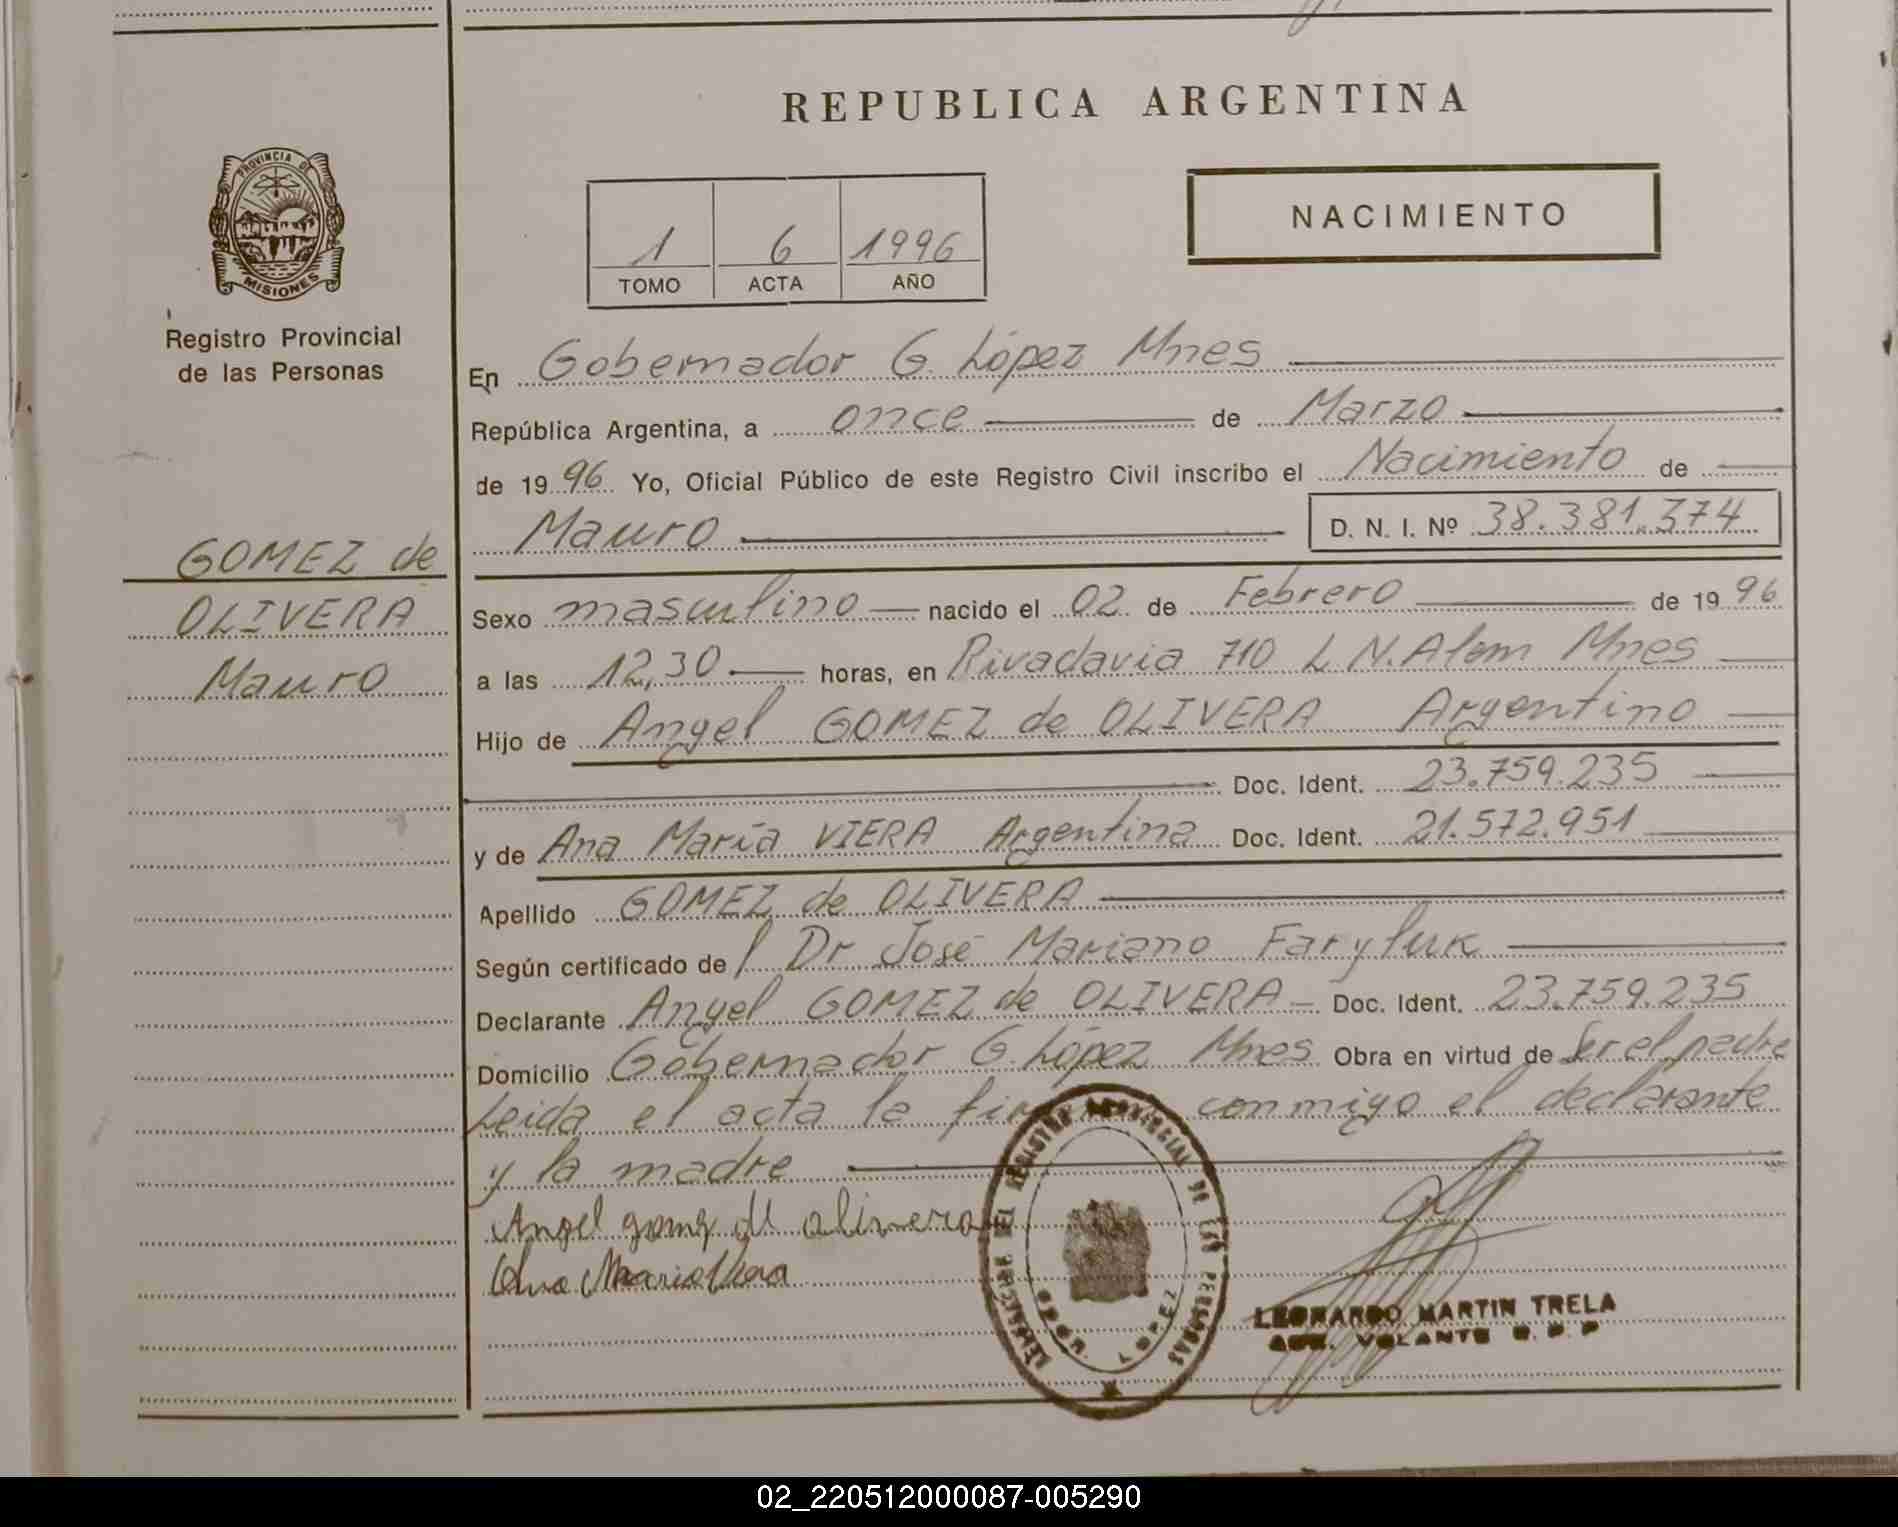 REPUBLICA ARGENTINA
PROVINCIA DE
MISIONES
Registro Provincial
de las Personas
NACIMIENTO
1 6 1996
TOMO ACTA AÑO
En Gobernador G. López Mnes
República Argentina, a once de Marzo
de 1996 Yo, Oficial Público de este Registro Civil inscribo el Nacimiento de
Mauro D. N. I. Nº 38.381.374
GOMEZ de
OLIVERA
Mauro
Sexo masculino nacido el 02 de Febrero de 1996
a las 12,30 horas, en Rivadavia 710 L.N.Alem Mnes
Hijo de Angel GOMEZ de OLIVERA Argentino
Doc. Ident. 23.759.235
y de Ana María VIERA Argentina Doc. Ident. 21.572.951
Apellido GOMEZ de OLIVERA
Según certificado del Dr José Mariano Faryluk
Declarante Angel GOMEZ de OLIVERA Doc. Ident. 23.759.235
Domicilio Gobernador G. López Mnes Obra en virtud de Ser el padre
Leida el acta la conmigo el declarante
y la madre
Angel gomez de olivera
Ana Maria Viera
REGISTRO PROVINCIAL DE LAS PERSONAS
LOPEZ
LEONARDO MARTIN TRELA
VOLANTE
02_220512000087-005290